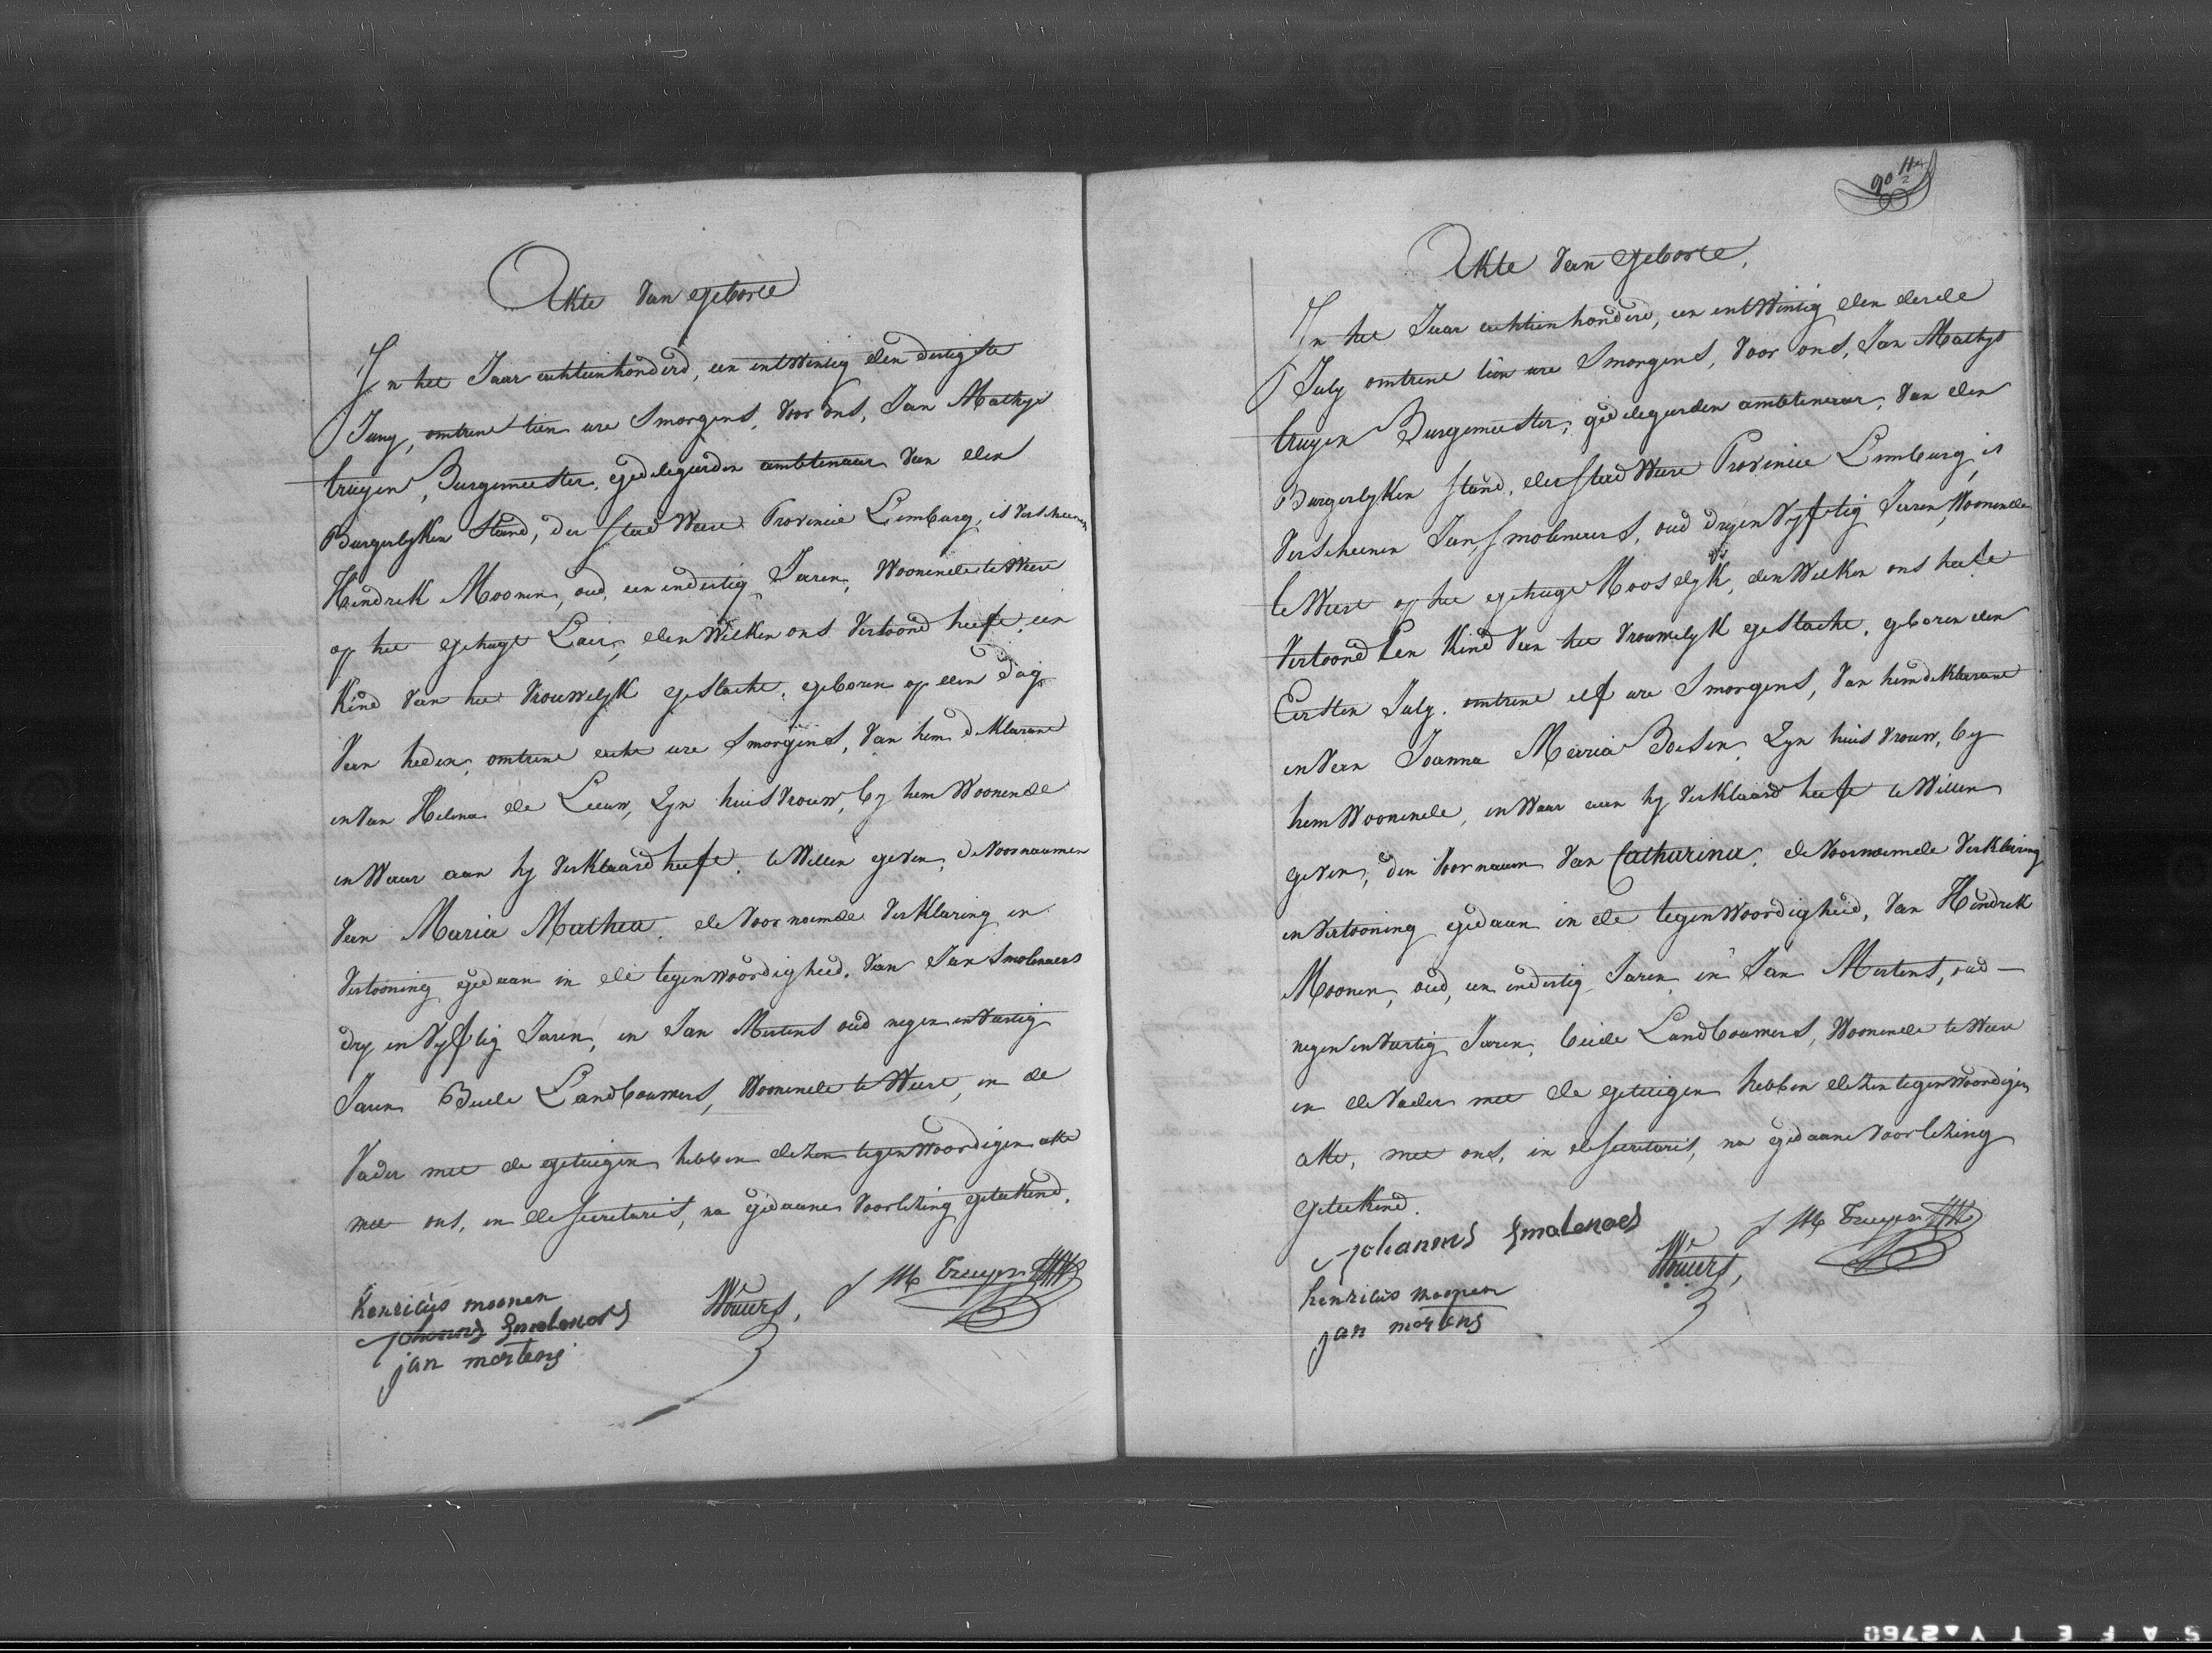 Akte van geborte
In het Jaar achtienhonderd, een entwintig den dertigste
Juny, omtrent tien ure Smorgens, Voor ons, Jan Mathys
truyen, Burgemeester, gedelegeerden ambtenaar van den
Burgerlyken Stand, der stad Weert Provincie Limburg, is verscheenen
Hendrik Moonen, oud, een endertig Jaren, Woonende te Weert
op het gehugt Laer, den Welken ons Vertoond heeft een
Kind Van het Vrouwelyk geslacht, geboren op den dag
Van heden, omtrent acht ure Smorgens, Van hem deklarant
en Van Helena de Leeuw, Zyn huisvrouw, by hem Woonende
en Waar aan hy Verklaard heeft, te Willen geven, de Voornaamen
Van Maria Mathea, de Voornoemde Verklaring en
Vertooning gedaan in de tegenwoordigheid, Van Jan Smolenaers
dry en Vyftig Jaren, en Jan Mertens oud negen en Veertig
Jaren Beide Landbouwers, Woonende te Weert, en de
Vader met de getuigen hebben dezen tegenwoordigen akte
met ons, en de secretaris, na gedaane Voorlezing geteekend.
henricus moonen
Johannis Smolenaers
jan mertens
Wouters,
J M Truyen
90
Akte Van geborte,
In het Jaar achtienhonderd, een entwintig den derde
July omtrent tien ure Smorgens, Voor ons, Jan Mathys
truyen Burgemeester, gedelegeerden ambtenaar, Van den
Burgerlyken stand, der stad Weert Provincie Limburg, is
Verscheenen Jan Smolenaers, oud dryen Vyftig Jaren, Woonende
te Weert op het gehugt Moosdyk, den Welken ons heeft
Vertoond Een Kind Van het Vrouwelyk geslacht, geboren den
Eersten July, omtrent elf ure Smorgens, Van hem deklarant
en Van Joanna Maria Boesen, Zyn huisvrouw, by
hem Woonende, en Waar aan hy Verklaard heeft te Willen
geven, den Voornaam Van Catharina, de Voornoemde Verklaring
en Vertooning gedaan in de tegenwoordigheid, Van Hendrik
Moonen, oud, een endertig Jaren, en Jan Mertens, oud
negen en Veertig Jaren, beide Landbouwers, Woonende te Weert
en de Vader met de getuigen hebben dezen tegenwoordigen
akte, met ons, en de secretaris, na gedaane Voorlezing
geteekend.
Johannis Smolenaers
henricus moonen
jan mertens
Wouters,
J M Truyen
SAFETY▲2760